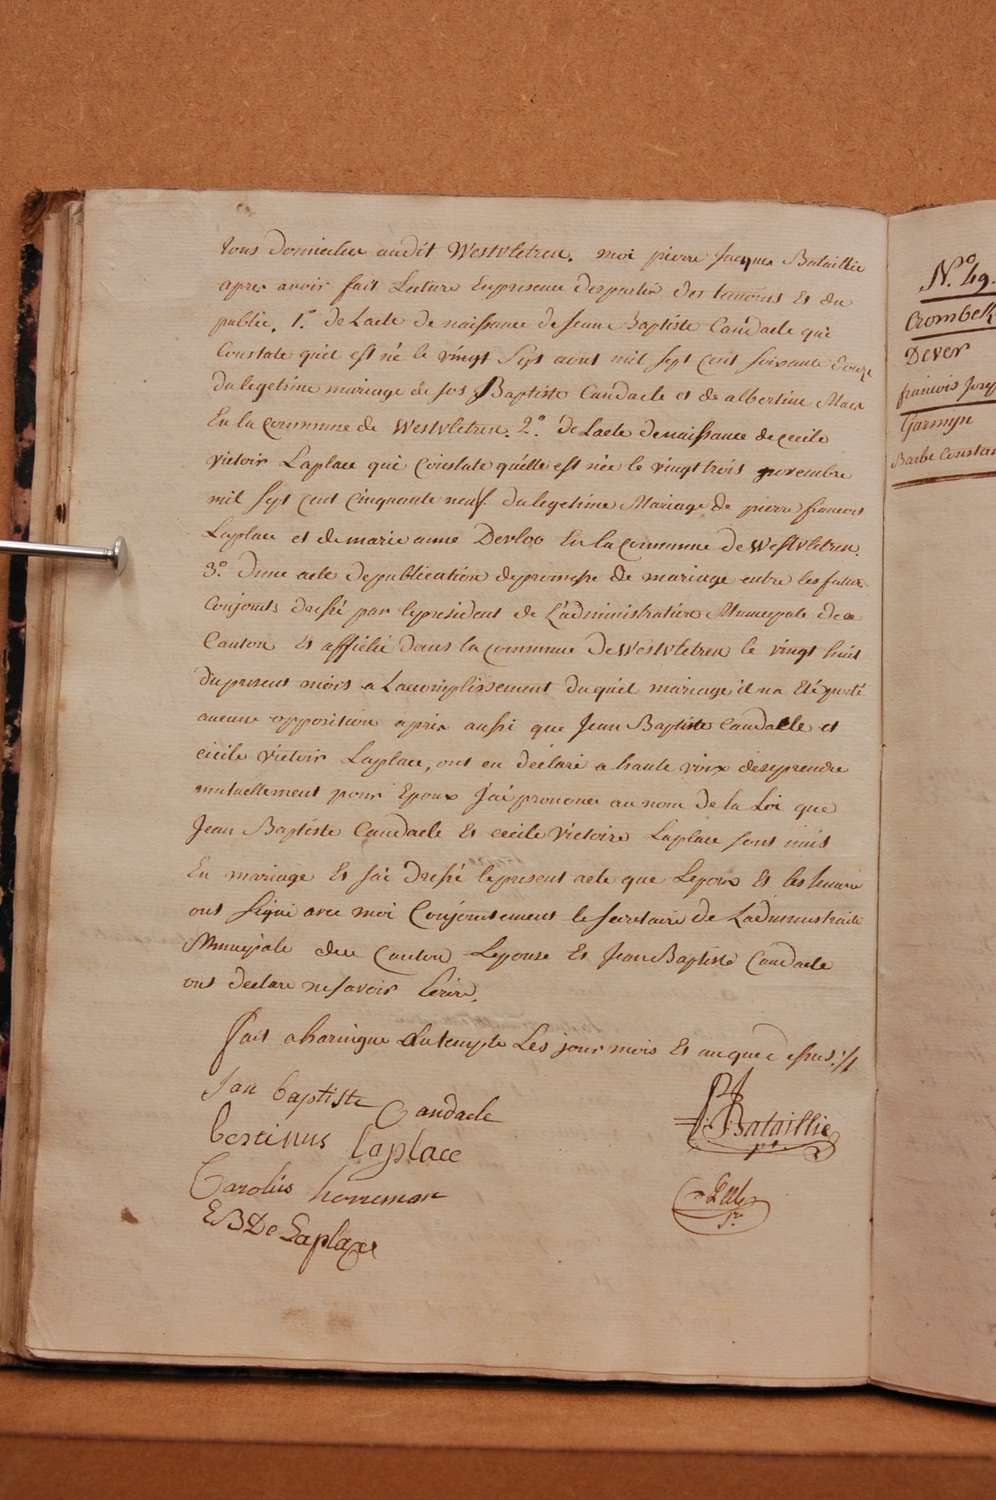 tous domicilié audit Westvletren. moi pierre Jacques Bataillie
apres avoir fait Lecture En presence des parties des temoins Et du
public. 1.° de Lacte de naissance de Jean Baptiste Candaele qui
Constate quil est né le vingt Sept aout mil sept cent soixante douze
du legetime mariage de Jos Baptiste Candaele et de albertine Maes
En la Commune de Westvletren. 2.° de Lacte de naissance de Cecile
Victoir Laplace qui Constate quélle est née le vingt trois novembre
mil sept cent cinquante neuf. du legetime Mariage de pierre francois
Laplace et de marie anne Devloo En la Commune de Westvletren.
3.° dune acte de publication de promesse de mariage entre les futur
Conjoints dressé par le president de L'administration Municipale de ce
Canton Et affiché dans la Commune de Westvletren le vingt huit
du present mois a Laccomplissement du quel mariage il na Eté porté
aucune opposition apres aussi que Jean Baptiste Candaele et
cicile Victoir Laplace, ont en declaré a haute voix de se prendre
mutuellement pour Epoux J'ai prononcé au nom de la Loi que
Jean Baptiste Candaele Et cecile Victoire Laplace sont unis
En mariage Et J'ai dressé le present acte que Lepoux Et les temoins
ont signé avec moi Conjointement le secretaire de Ladministratio
Municipale du Canton Lepouse Et Jean Baptiste Candaele
ont declaré ne savoir Ecrire.
fait a haringue Au temple Les jour mois Et an que dessus ://
Jan baptiste Candaele
bertinus laplace
Carolus
E B De Laplace
P: J: Bataillie
pt.
Sre
N.° 49.
Crombek
Dever
francois Josep
Garmyn
Barbe Constan